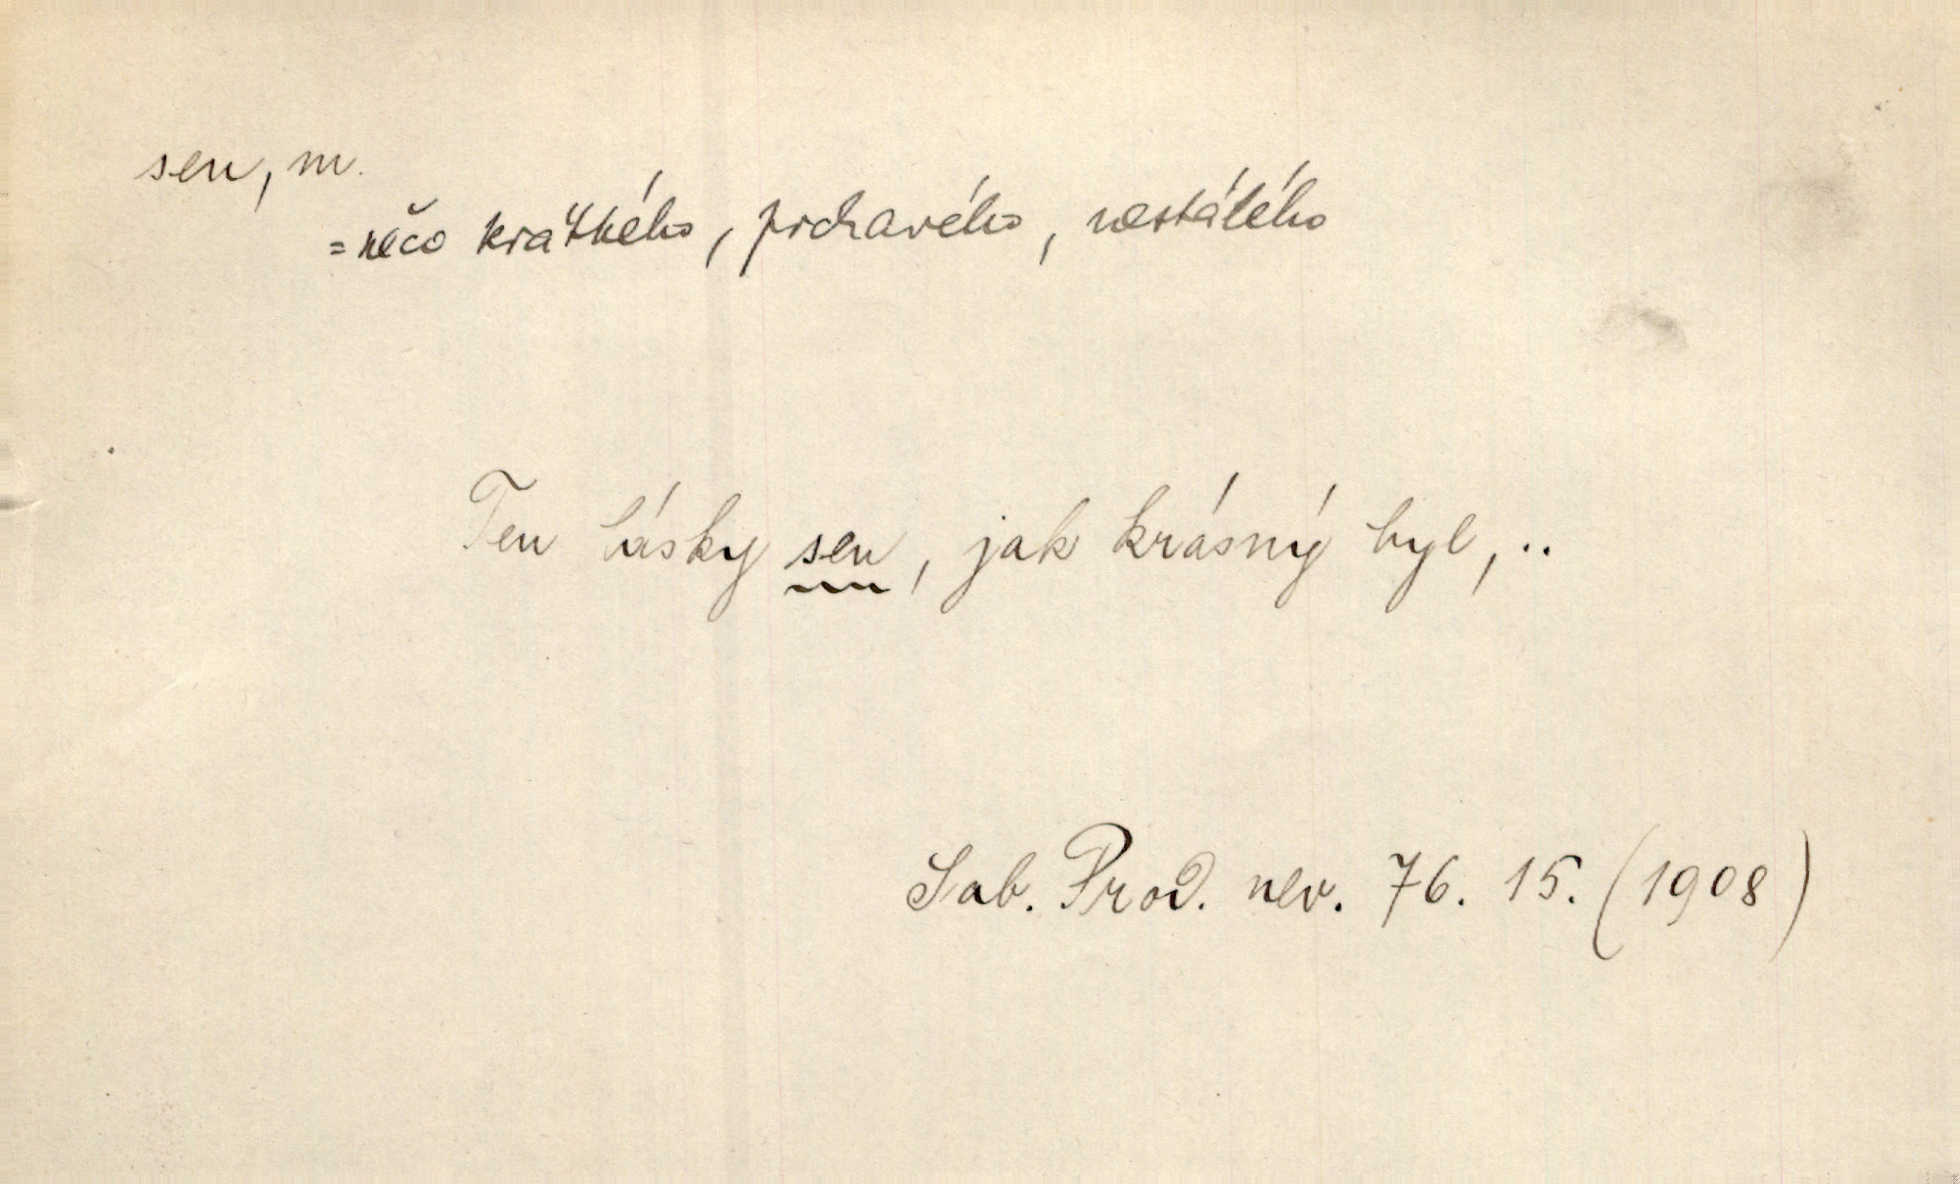 sen, m.
= něco krátkého, prchavého, nestálého
Ten lásky sen, jak krásný byl, ..
Sab. Prod. nev. 76. 15. (1908)